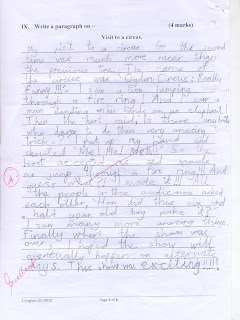 IX. Write a paragraph on – (4 marks)
Visit to a circus.
My visit to a circus for the second
time was much more than
the previous time. The name of
the circus was 'Ogdon Circus: Really
Funny!!!'. I saw a lion jumping
through a fire ring. And saw a
man standing on his head on an elephant!
Then the host said, Is there anybody
who dares to do these very amazing
tricks? I put up my hand and
shouted 'Me! Me! Me!!!'. So the
host accepted me and made
me jump through a fire ring! And
guess what? I made it!!!
The people in the audience asked
each other, 'How did this six and
half year old boy make it?'
I saw many more amazing things.
Finally when the show was
over, I hoped the show will
eventually happen on alternate
days. This show was exciting!!!!